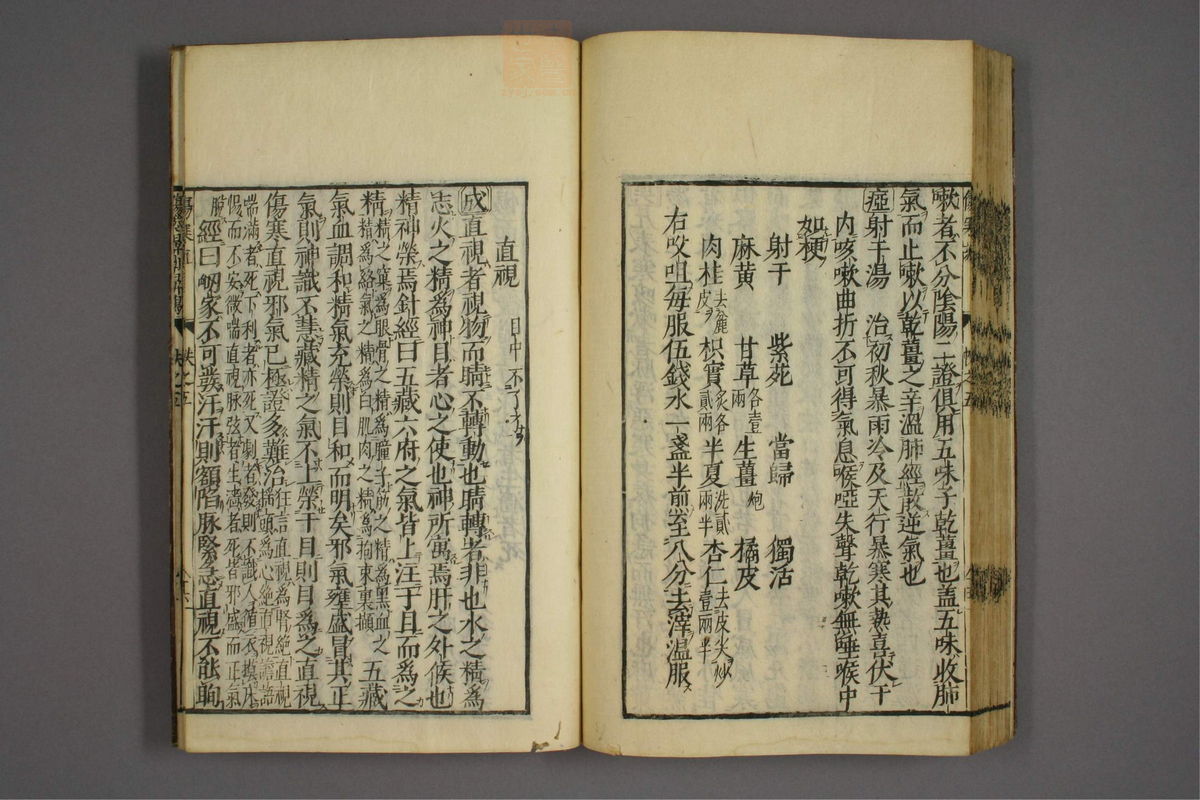 嗽者不分陰陽二證俱用五味子乾薑也蓋五味收肺
氣而止嗽以乾薑之辛溫肺經散逆氣也
痙射干湯 治初秋暴雨冷及天行暴寒其熱喜伏于
内咳嗽曲折不可得氣息喉啞失聲乾嗽無唾喉中
如梗
射干 紫菀 當歸 獨活
麻黄 甘草各壹兩 生薑炮 橘皮
肉桂去麄皮 枳實炙各貳兩 半夏洗貳兩半 杏仁去皮尖炒壹兩半
右㕮咀每服伍錢水一盞半前至八分去滓溫服
直視 目中不了了
成直視者視物而睛不轉動也睛轉者非也水之精爲
志火之精爲神目者心之使也神所寓焉肝之外候也
精神榮焉針經曰五藏六府之氣皆上注于目而爲之
精精之窠爲眼骨之精爲瞳子筋之精爲黑血之精爲絡氣之精爲白肌肉之精爲拘束裹擷五藏
氣血調和精氣充榮則目和而明矣邪氣壅盛冒其正
氣則神識不慧藏精之氣不上榮于目則目爲之直視
傷寒直視邪氣已極證多難治狂言直視爲腎絶直視搖頭爲心絶直視譫語
喘滿者死下利者亦死又劇者發則不識人循衣摸床
惕而不安微喘直視脉弦者生濇者死皆邪盛而正氣
脱 經曰衂家不可發汗汗則額陷脉緊急直視不能眴